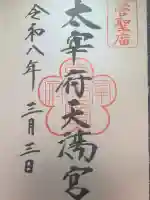 菅聖廟
太宰府天満宮
令和八年三月三日